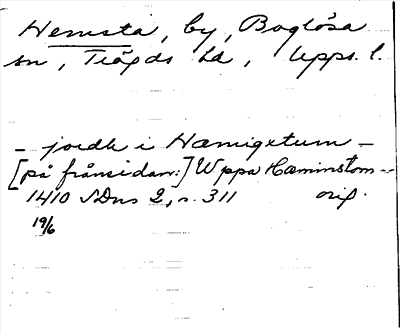 Hemsta, by, Boglösa
sn, Trögds hd, Upps. l.
- jordh i Hæmigxtum -
[på frånsidan:] Wppa Hæminstom -
1410 SDns 2, s. 311 orig.
19/6